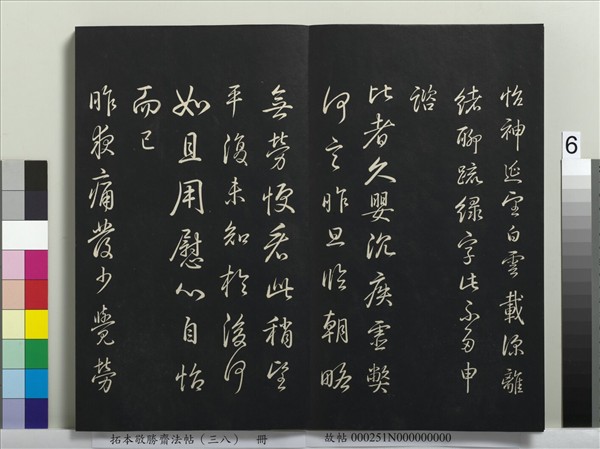 怡神延望白雲載深離
緒聊疏綠字此不多申
諮
比者久嬰沉疾虛弊
何言昨旦臨朝略
無勞看此稍望
平復未知於後何
如且用慰心自怡
而已
昨夜痛發少覺勞
6
拓本敬勝齋法帖(三八) 冊 故帖 000251N000000000